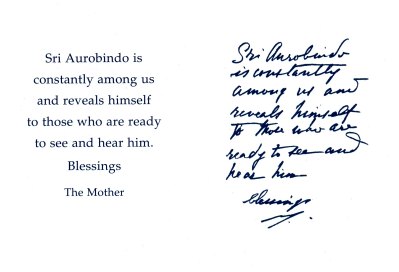 Sri Aurobindo is
constantly among us
and reveals himself
to those who are ready
to see and hear him.
Blessings
The Mother
Sri Aurobindo
is constantly
among us and
reveals himself
to those who are
ready to see and
hear him
Blessings